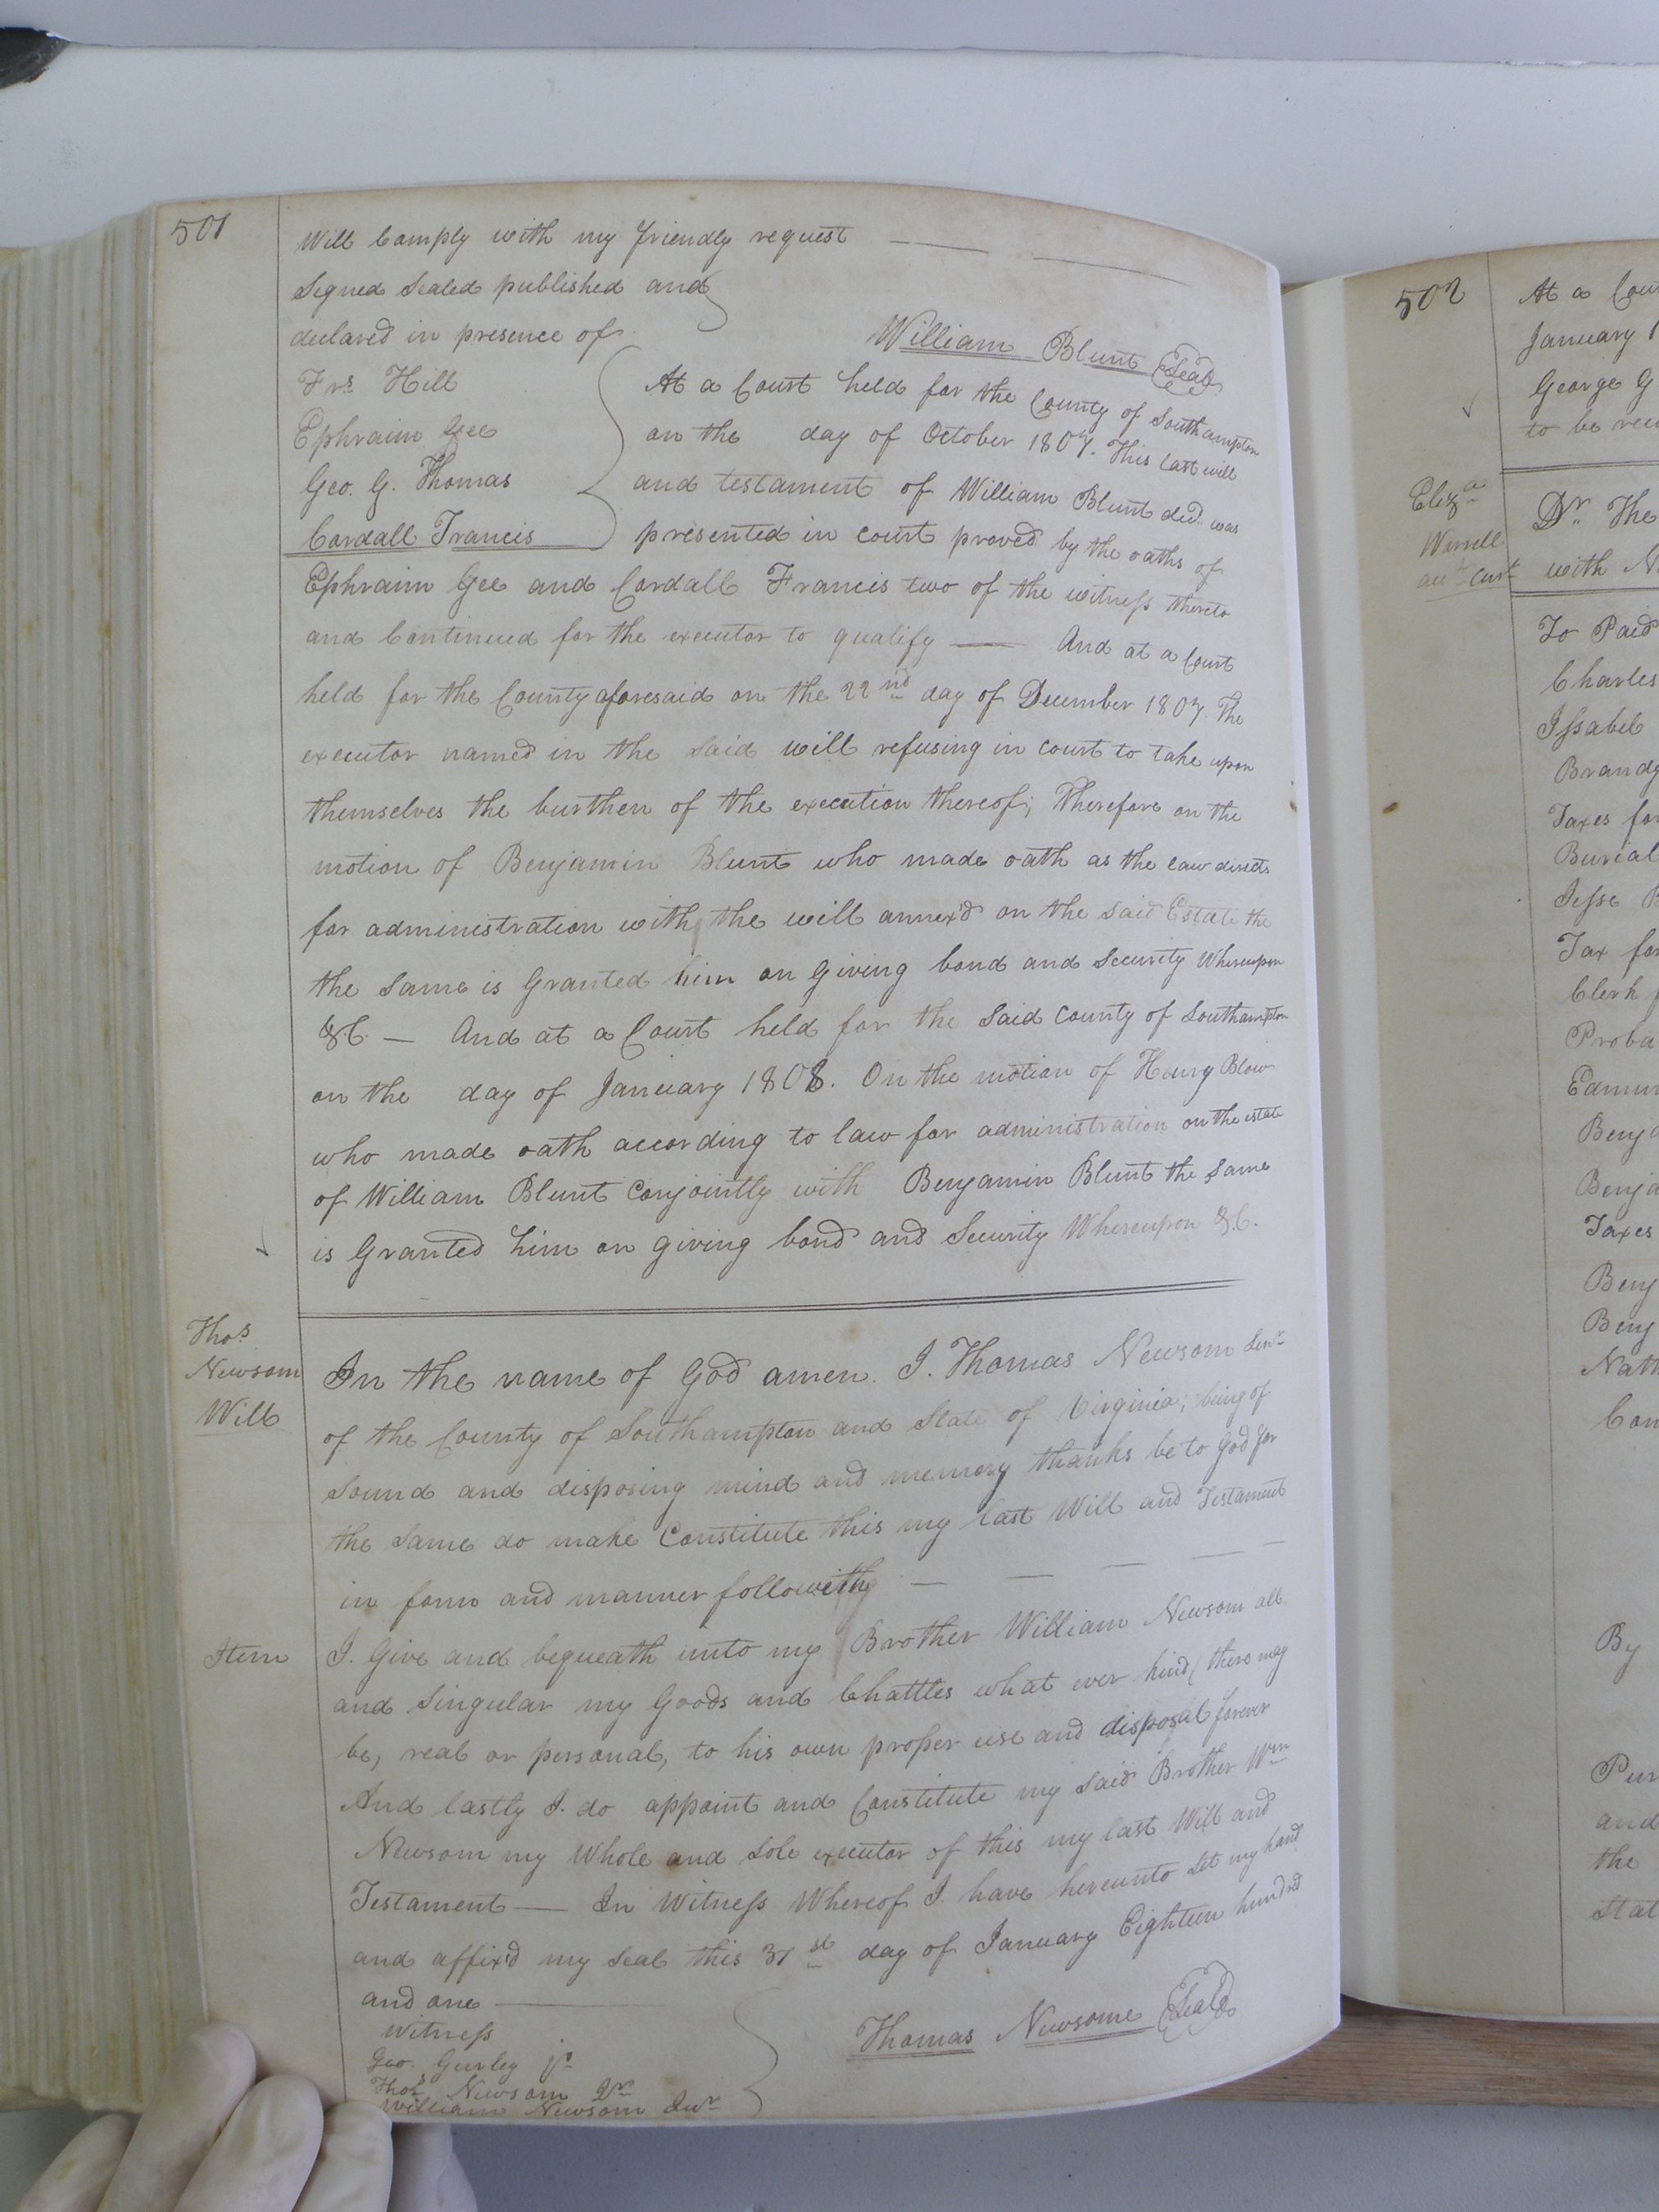 501
Will Comply with my friendly request
Signed Sealed published and
declared in presence of
William Blunt (Seal)
Frs. Hill
Ephraim Gee
Geo. G. Thomas
Cordall Francis
At a Court held for the County of Southampton
on the day of October 1807. This last will
and testament of William Blunt decd. was
presented in court proved by the oaths of
Ephraim Gee and Cordall Francis two of the witness thereto
and Continued for the executor to qualify — And at a Court
held for the County aforesaid on the 22nd day of December 1807. The
executor named in the said will refusing in court to take upon
themselves the burthen of the execution thereof; Therefore on the
motion of Benjamin Blunt who made oath as the law directs
for administration with the will annex'd on the said Estate the
the same is Granted him on giving bond and Security Whereupon
&C. — And at a Court held for the said County of Southampton
on the day of January 1808. On the motion of Henry Blow
who made oath according to law for administration on the estate
of William Blunt Conjointly with Benjamin Blunt the same
is Granted him on giving bond and Security Whereupon &C.
Thos.
Newsom
Will
In the name of God amen. I. Thomas Newsom Senr.
of the County of Southampton and State of Virginia; being of
sound and disposing mind and memory thanks be to God for
the same do make Constitute this my last Will and Testament
in form and manner
Item
I. Give and bequeath unto my Brother William Newsom all
and Singular my Goods and Chattles what ever kind (there may
be, real or personal, to his own proper use and disposal forever
And lastly I. do appoint and Constitute my said Brother Wm.
Newsom my Whole and Sole executor of this my last Will and
Testament — In Witness Whereof I. have hereunto Set my hand
and affix'd my Seal this 31st day of January Eighteen hundred
and one
Witness
Geo. Gurley Jr.
Thos. Newsom
William Newsom Junr.
Thomas Newsome (Seal)
502
At a
January 1
George G
to be
Eliza
Worrell
Dr. The
with
To Paid
Charles
Issabel
Brandy
Taxes for
Burial
Jesse
Tax for
Clerk
Proba
Edmun
Benja
Benja
Taxes
Benj
Benj
Nath
By
and
the